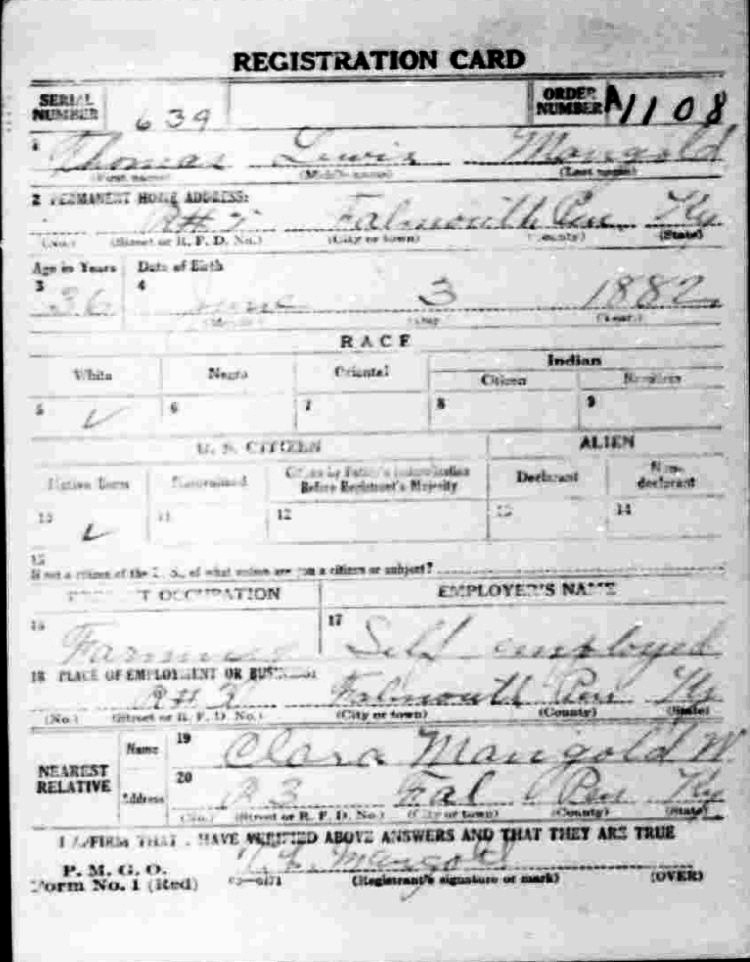 REGISTRATION CARD
SERIAL NUMBER 639 ORDER NUMBER A1108
1 Thomas Lewis Mangold
(First name) (Middle name) (Last name)
2 PERMANENT HOME ADDRESS:
R# Falmouth Pen Ky
(No.) (Street or R. F. D. No.) (City or town) (County) (State)
Age in Years Date of Birth
3 36 4 June 3 1882
(Month) (Day) (Year)
RACE
White Negro Oriental Indian
Citizen Noncitizen
5 ✓ 6 7 8 9
U. S. CITIZEN ALIEN
Native Born Naturalized Citizen by Father's Naturalization Before Registrant's Majority Declarant Non-declarant
10 ✓ 11 12 13 14
15
If not a citizen of the U. S., of what nation are you a citizen or subject?
PRESENT OCCUPATION EMPLOYER'S NAME
16 Farmer 17 Self employed
18 PLACE OF EMPLOYMENT OR BUSINESS:
R# Falmouth Pen Ky
(No.) (Street or R. F. D. No.) (City or town) (County) (State)
NEAREST RELATIVE Name 19 Clara Mangold W
Address 20 R 3 Fal Pen Ky
(No.) (Street or R. F. D. No.) (City or town) (County) (State)
I AFFIRM THAT I HAVE VERIFIED ABOVE ANSWERS AND THAT THEY ARE TRUE
P. M. G. O.
Form No. 1 (Red) 03—6171 L. Mangold
(Registrant's signature or mark) (OVER)